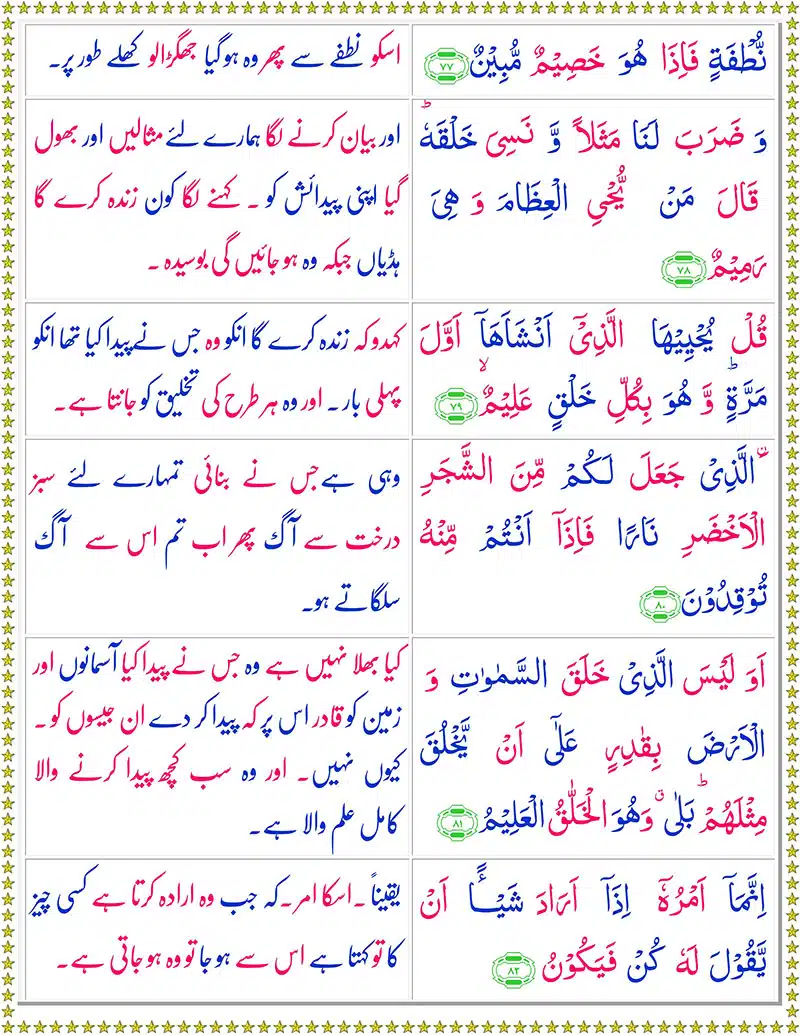 نُّطْفَةٍ فَاِذَا هُوَ خَصِيْمٌ مُّبِيْنٌ ٧٧
اسکو نطفے سے پھر وہ ہوگیا جھگڑالو کھلے طور پر۔
وَ ضَرَبَ لَنَا مَثَلاً وَّ نَسِىَ خَلْقَهٗ ؕ
قَالَ مَنْ يُّحْىِ الْعِظَامَ وَ هِىَ
رَمِيْمٌ ٧٨
اور بیان کرنے لگا ہمارے لئے مثالیں اور بھول
گیا اپنی پیدائش کو ۔ کہنے لگا کون زندہ کرے گا
ہڈیاں جبکہ وہ ہو جائیں گی بوسیدہ ۔
قُلْ يُحْيِيْهَا الَّذِىْۤ اَنْشَاَهَاۤ اَوَّلَ
مَرَّةٍ ؕ وَّ هُوَ بِكُلِّ خَلْقٍ عَلِيْمٌ ۙ ٧٩
کہدو کہ زندہ کرے گا انکو وہ جس نے پیدا کیا تھا انکو
پہلی بار ۔ اور وہ ہر طرح کی تخلیق کو جانتا ہے۔
ۨ الَّذِىْ جَعَلَ لَكُمْ مِّنَ الشَّجَرِ
الْاَخْضَرِ نَارًا فَاِذَاۤ اَنْتُمْ مِّنْهُ
تُوْقِدُوْنَ ٨٠
وہی ہے جس نے بنائی تمہارے لئے سبز
درخت سے آگ پھر اب تم اس سے آگ
سلگاتے ہو۔
اَوَ لَيْسَ الَّذِىْ خَلَقَ السَّمٰوٰتِ وَ
الْاَرْضَ بِقٰدِرٍ عَلٰٓى اَنْ يَّخْلُقَ
مِثْلَهُمْ ؕ بَلٰى ۗ وَهُوَ الْخَلّٰقُ الْعَلِيْمُ ٨١
کیا بھلا نہیں ہے وہ جس نے پیدا کیا آسمانوں اور
زمین کو قادر اس پر کہ پیدا کر دے ان جیسوں کو ۔
کیوں نہیں۔ اور وہ سب کچھ پیدا کرنے والا
کامل علم والا ہے۔
اِنَّمَاۤ اَمْرُهٗۤ اِذَاۤ اَرَادَ شَیْـًٔـا اَنْ
يَّقُوْلَ لَهٗ كُنْ فَيَكُوْنُ ٨٢
یقیناً ۔اسکا امر ۔کہ جب وہ ارادہ کرتا ہے کسی چیز
کا تو کہتا ہے اس سے ہو جا تو وہ ہو جاتی ہے۔